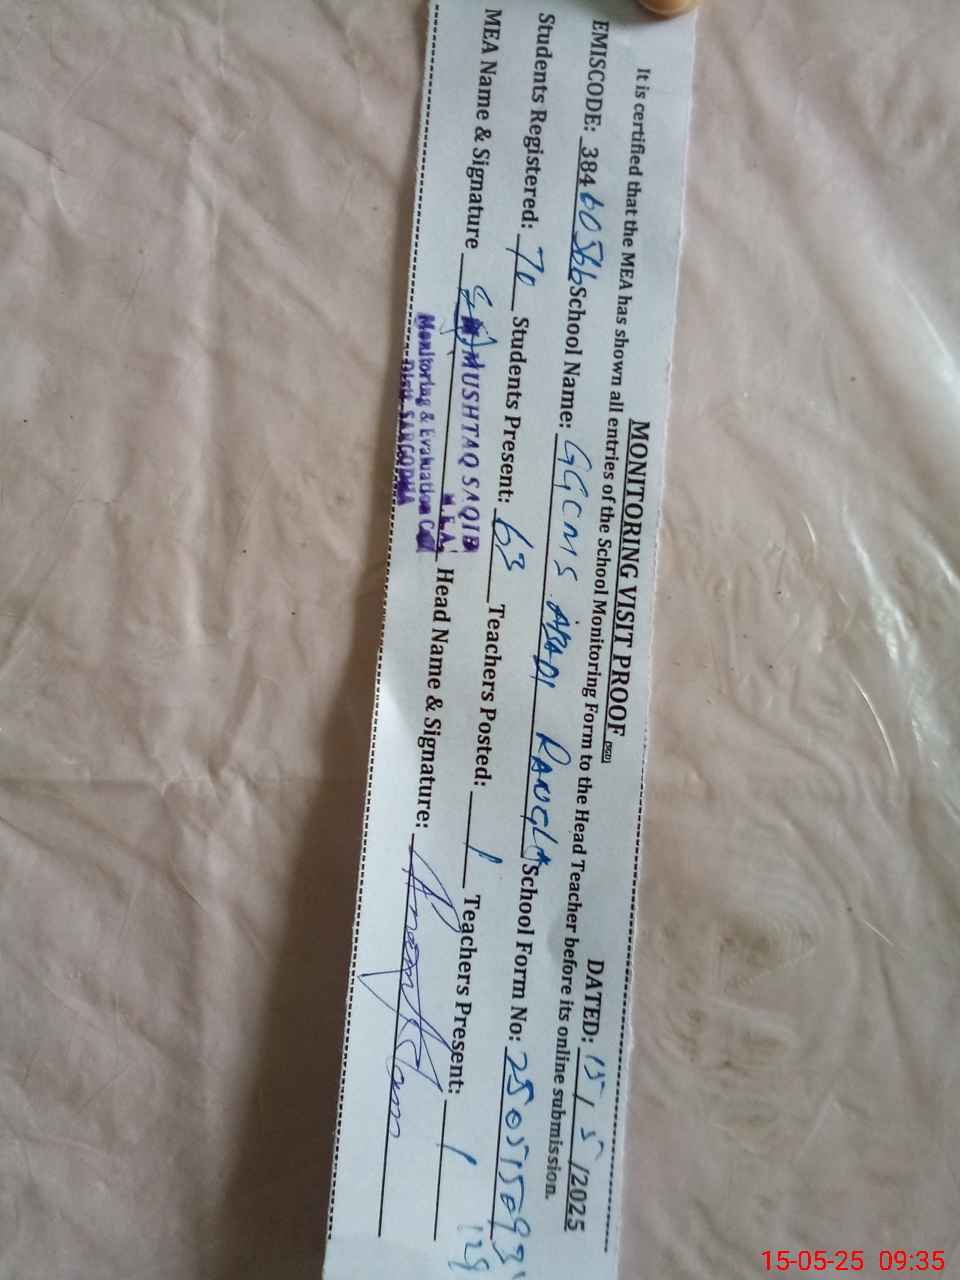 MONITORING VISIT PROOF (SGD)
DATED: 15/5/2025
It is certified that the MEA has shown all entries of the School Monitoring Form to the Head Teacher before its online submission.
EMISCODE: 38460566 School Name: GGCMS ABADI RANGLA School Form No: 250515093
129
Students Registered: 70 Students Present: 63 Teachers Posted: 1 Teachers Present: 1
MEA Name & Signature MUSHTAQ SAQIB Head Name & Signature:
M.E.A.
Monitoring & Evaluation Cell
Distt. SARGODHA
15-05-25 09:35